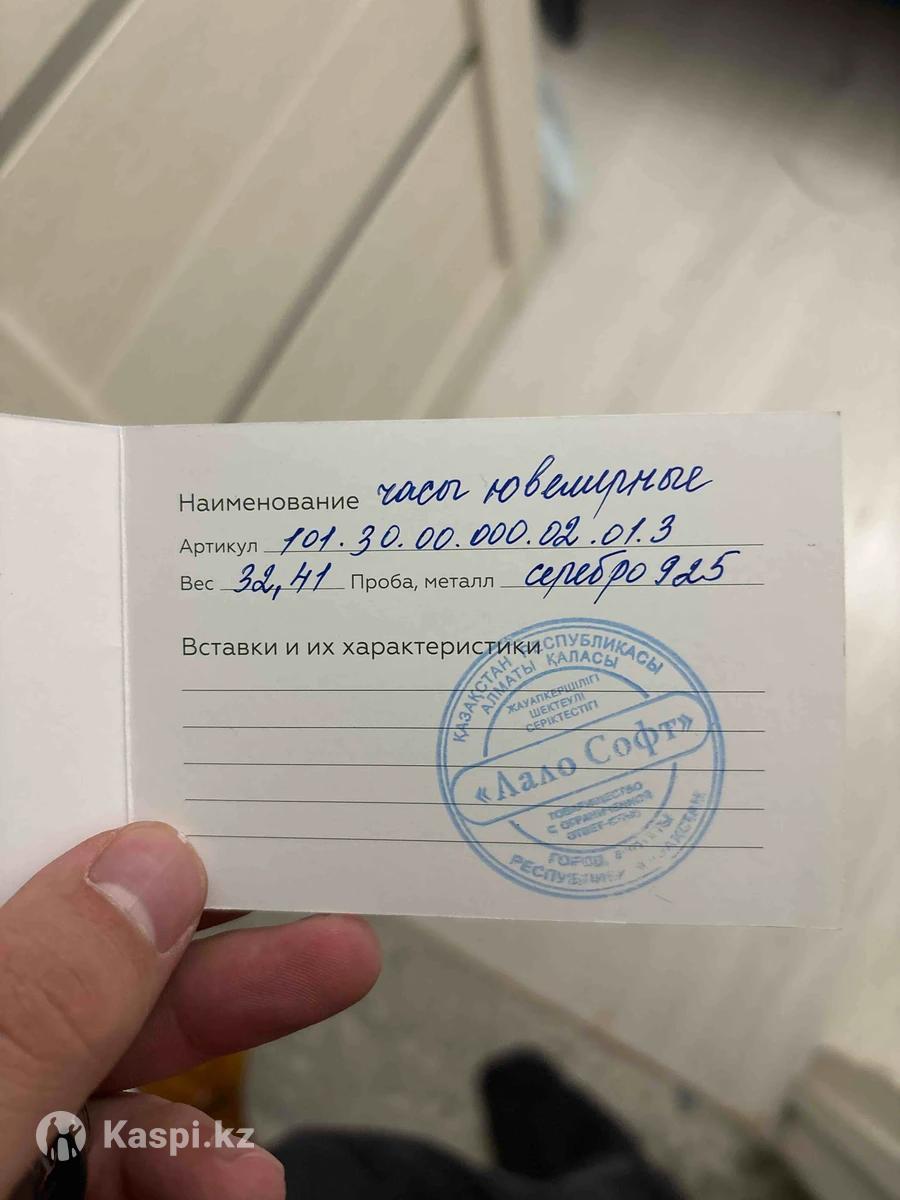 Наименование часы ювелирные
Артикул 101.30.00.000.02.01.3
Вес 32,41 Проба, металл серебро 925
Вставки и их характеристики
ҚАЗАҚСТАН РЕСПУБЛИКАСЫ
АЛМАТЫ ҚАЛАСЫ
ЖАУАПКЕРШІЛІГІ
ШЕКТЕУЛІ
СЕРІКТЕСТІГІ
«Лало Софт»
ТОВАРИЩЕСТВО
С ОГРАНИЧЕННОЙ
ОТВЕТ-СТЬЮ
ГОРОД АЛМАТЫ
РЕСПУБЛИКА КАЗАХСТАН
Kaspi.kz